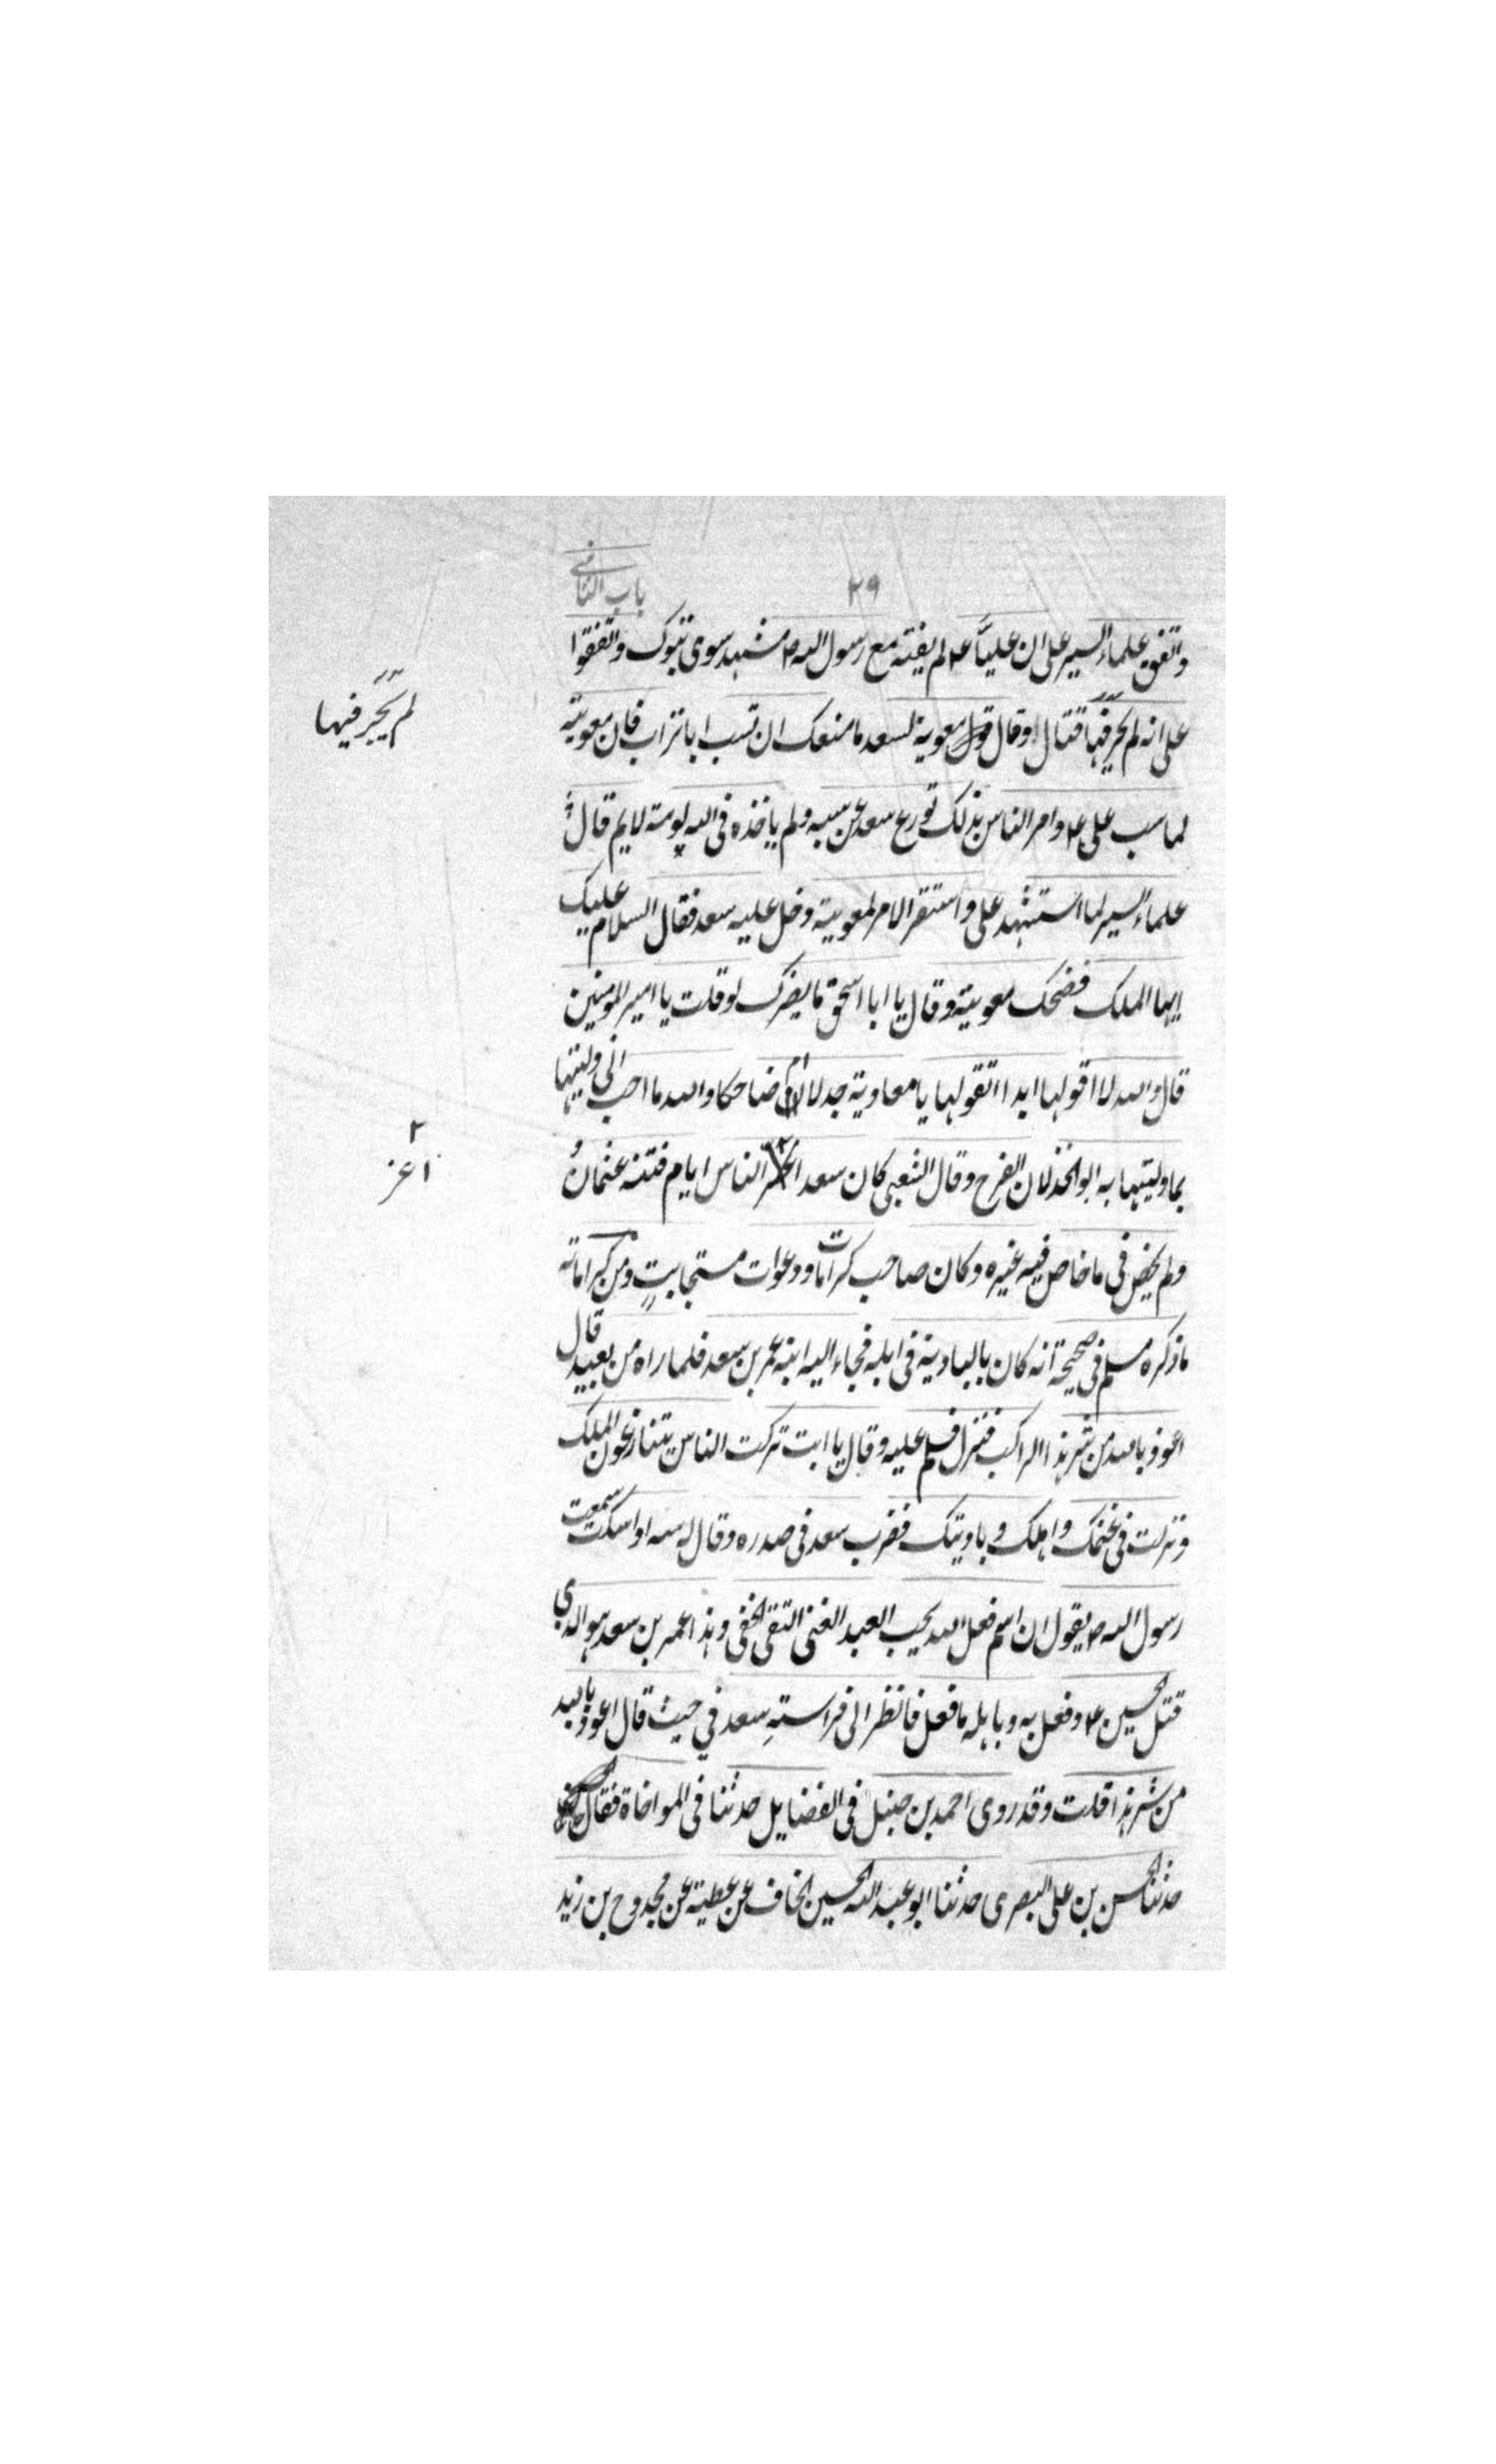 ٢٩
باب الثاني
واتفق علماء السير على ان عليّاً ع لم يفته مع رسول الله ص مشهد سوى تبوك واتفقوا
على انه لم يجر فيها قتال وقال قول معوية لسعد ما منعك ان تسب ابا تراب فان معوية
لم يجر فيها
لما سب على ع وامر الناس بذلك تورع سعد عن سبه ولم ياخذه في الله لومة لايم قال
علماء السير لما استشهد على واستقر الامر لمعوية دخل عليه سعد فقال السلام عليك
ايها الملك فضحك معوية وقال يا ابا اسحق ما يضرك لو قلت يا امير المومنين
قال والله لا اقولها ابدا اتقولها يا معاوية جدلا ام ضاحكا والله ما احب اني وليتها
بما وليتها به ابو الخذلان الفرح وقال الشعبي كان سعد الناس ايام فتنة عثمان
٢ اعز
ولم يخض في ما خاض فيه غيره وكان صاحب كرامات ودعوات مستجابت ومن كراماته
ما ذكره مسلم في صحيحه انه كان بالبادية في ابله فجاء اليه ابنه عمر بن سعد فلما راه من بعيد قال
اعوذ بالله من شر هذا الراكب فنزل فسلم عليه وقال يا ابت تركت الناس يتنازعون الملك
ونزلت في غنمك واهلك وباديتك فضرب سعد في صدره وقال له سه او اسكت سمعت
رسول الله ص يقول ان اسم فعل الله يحب العبد الغنى التقى الخفى وهذا عمر بن سعد هو الذي
قتل الحسين ع وفعل به وباهله ما فعل فانظر الى فراسته سعد في حيث قال اعوذ بالله
من شر هذا قلت وقد روى احمد بن حنبل في الفضايل حدثنا في المواخاة فقال
حدثنا الحسن بن على البصرى حدثنا ابو عبد الله الحسين الخاف عن عطية عن مجدوح بن زيد